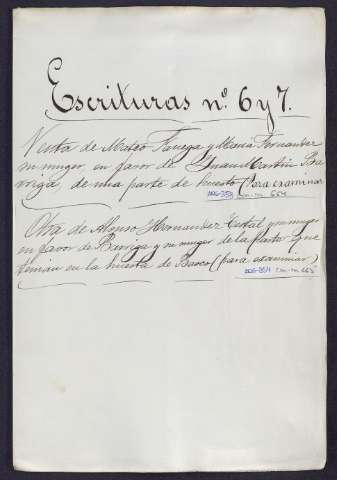 Escrituras nº 6 y 7.
Venta de Mateo y Maria Fernandez
su muger, en favor de Juan Martin Ba
rriga, de una parte de huerto (Para examinar
Otra de Alonso Hernandez y su muger
en favor de Barriga y su muger de la parte que
tenian en la huerta de Barco (para examinar)